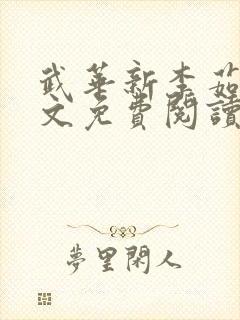 武華新李茹
文免費閱讀
夢里閑人